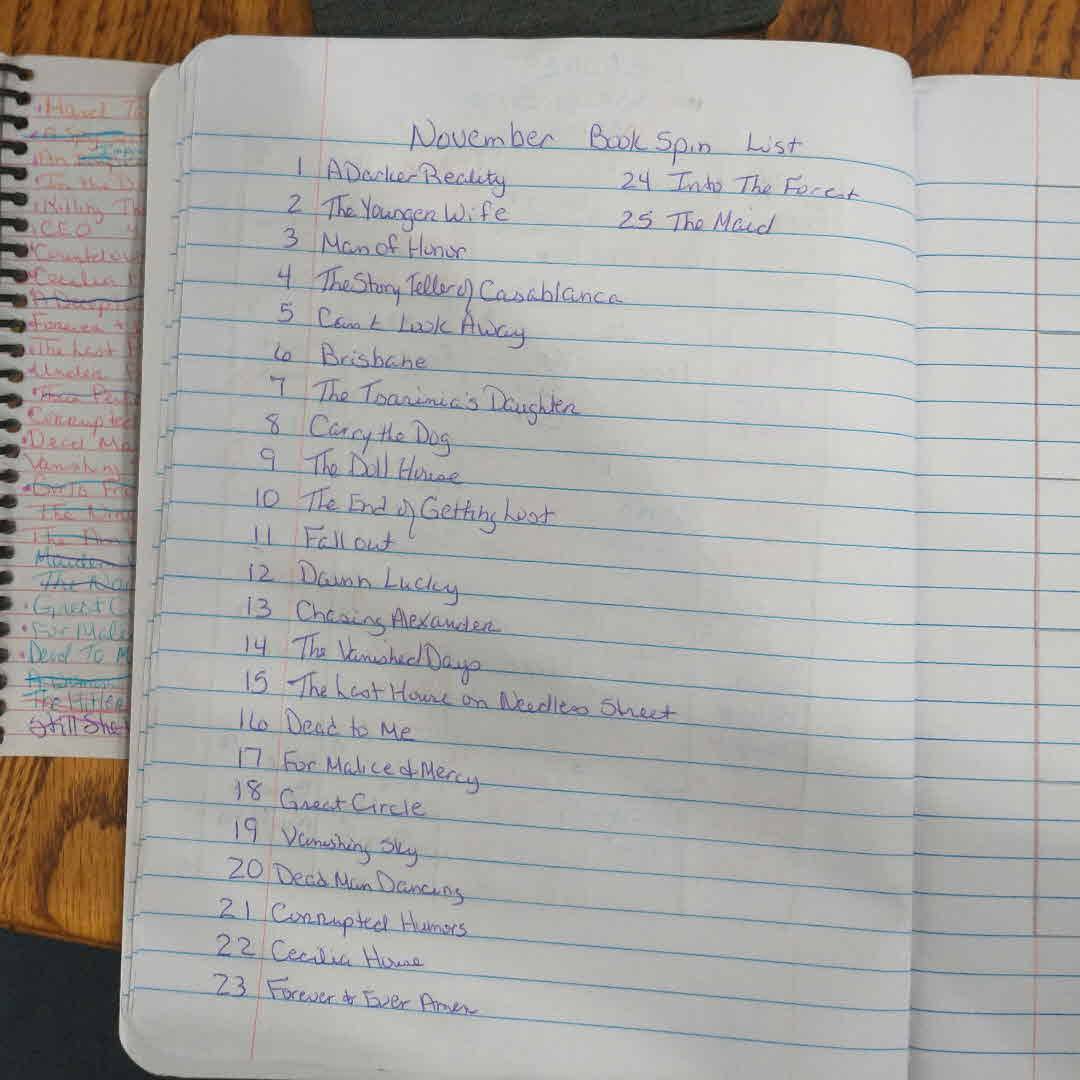 November Book Spin List
1 A Darker Reality
2 The Younger Wife
3 Man of Honor
4 The Story Teller of Casablanca
5 Can't Look Away
6 Brisbane
7 The Tsarinia's Daughter
8 Carry the Dog
9 The Doll House
10 The End of Getting Lost
11 Fall out
12 Damn Lucky
13 Chasing Alexander
14 The Vanished Days
15 The Last House on Needless Street
16 Dead to Me
17 For Malice & Mercy
18 Great Circle
19 Vanishing Sky
20 Dead Man Dancing
21 Corrupted Humors
22 Cecilia House
23 Forever & Ever Amen
24 Into The Forest
25 The Maid
Hard To
In the D
Killing Th
CEO
Cecilia
Forever &
The Last
Under
Corrupted
Dead Ma
Vanishing
Great C
For Malic
Dead To M
The Hitler
Still She